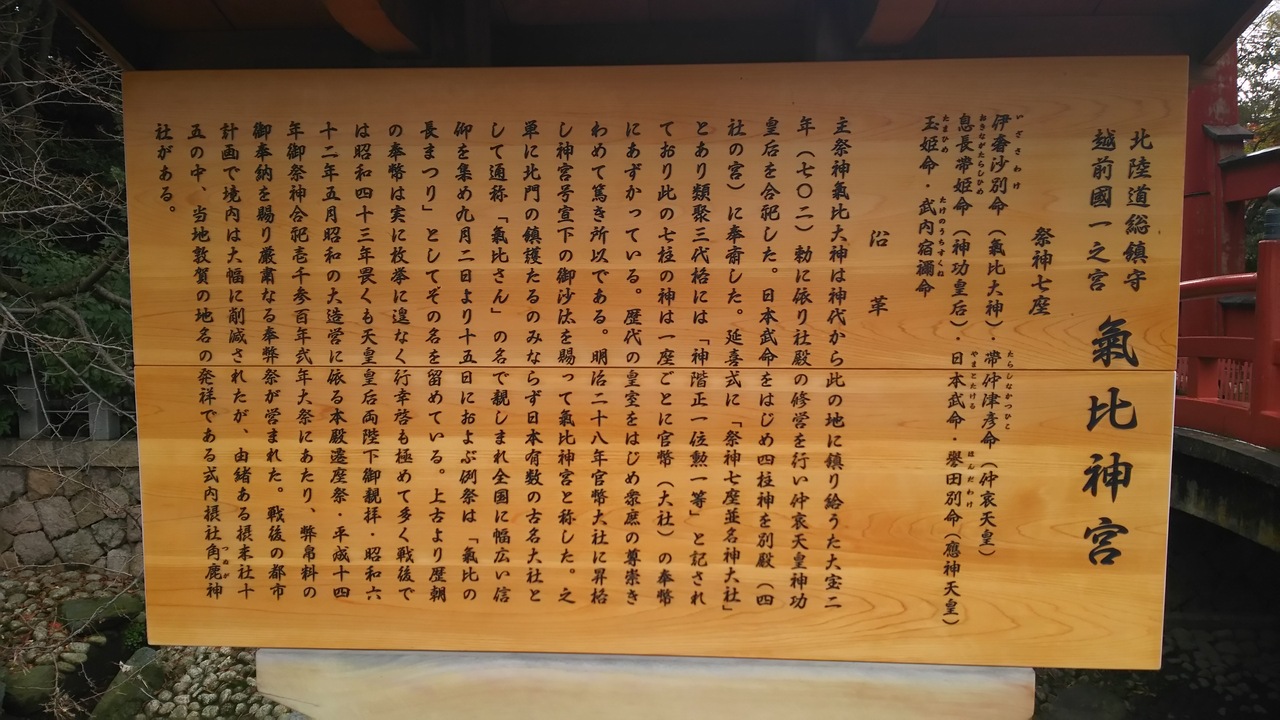 北陸道総鎮守
越前國一之宮
氣比神宮
祭神七座
伊奢沙別命（氣比大神）・帯仲津彦命（仲哀天皇）
いざさわけ
たらしなかつひこ
息長帯姫命（神功皇后）・日本武命・譽田別命（應神天皇）
おきながたらしひめ
やまとたける
ほんだわけ
玉姫命・武内宿禰命
たまひめ
たけのうちすくね
沿革
主祭神氣比大神は神代から此の地に鎮り給うた大宝二
年（七〇二）勅に依り社殿の修営を行い仲哀天皇神功
皇后を合祀した。日本武命をはじめ四柱神を別殿（四
社の宮）に奉斎した。延喜式に「祭神七座並名神大社」
とあり類聚三代格には「神階正一位勲一等」と記され
ており此の七柱の神は一座ごとに官幣（大社）の奉幣
にあずかっている。歴代の皇室をはじめ衆庶の尊崇き
わめて篤き所以である。明治二十八年官幣大社に昇格
し神宮号宣下の御沙汰を賜って氣比神宮と称した。之
単に北門の鎮護たるのみならず日本有数の古名大社と
して通称「氣比さん」の名で親しまれ全国に幅広い信
仰を集め九月二日より十五日におよぶ例祭は「氣比の
長まつり」としてその名を留めている。上古より歴朝
の奉幣は実に枚挙に遑なく行幸啓も極めて多く戦後で
は昭和四十三年畏くも天皇皇后両陛下御親拝・昭和六
十二年五月昭和の大造営に依る本殿遷座祭・平成十四
年御祭神合祀壱千参百年式年大祭にあたり、幣帛料の
御奉納を賜り厳粛なる奉弊祭が営まれた。戦後の都市
計画で境内は大幅に削減されたが、由緒ある摂末社十
五の中、当地敦賀の地名の発祥である式内摂社角鹿神
つぬが
社がある。